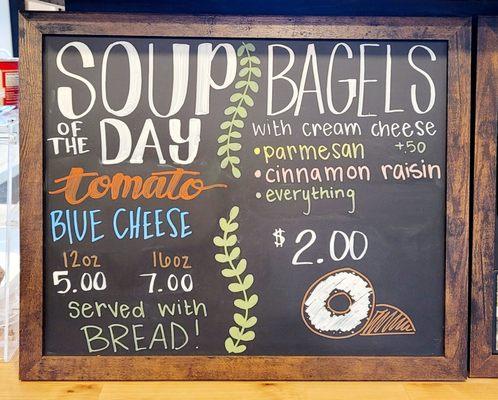 SOUP
OF THE DAY
tomato
BLUE CHEESE
12oz 16oz
5.00 7.00
served with
BREAD!
BAGELS
with cream cheese
+50
• parmesan
• cinnamon raisin
• everything
$2.00